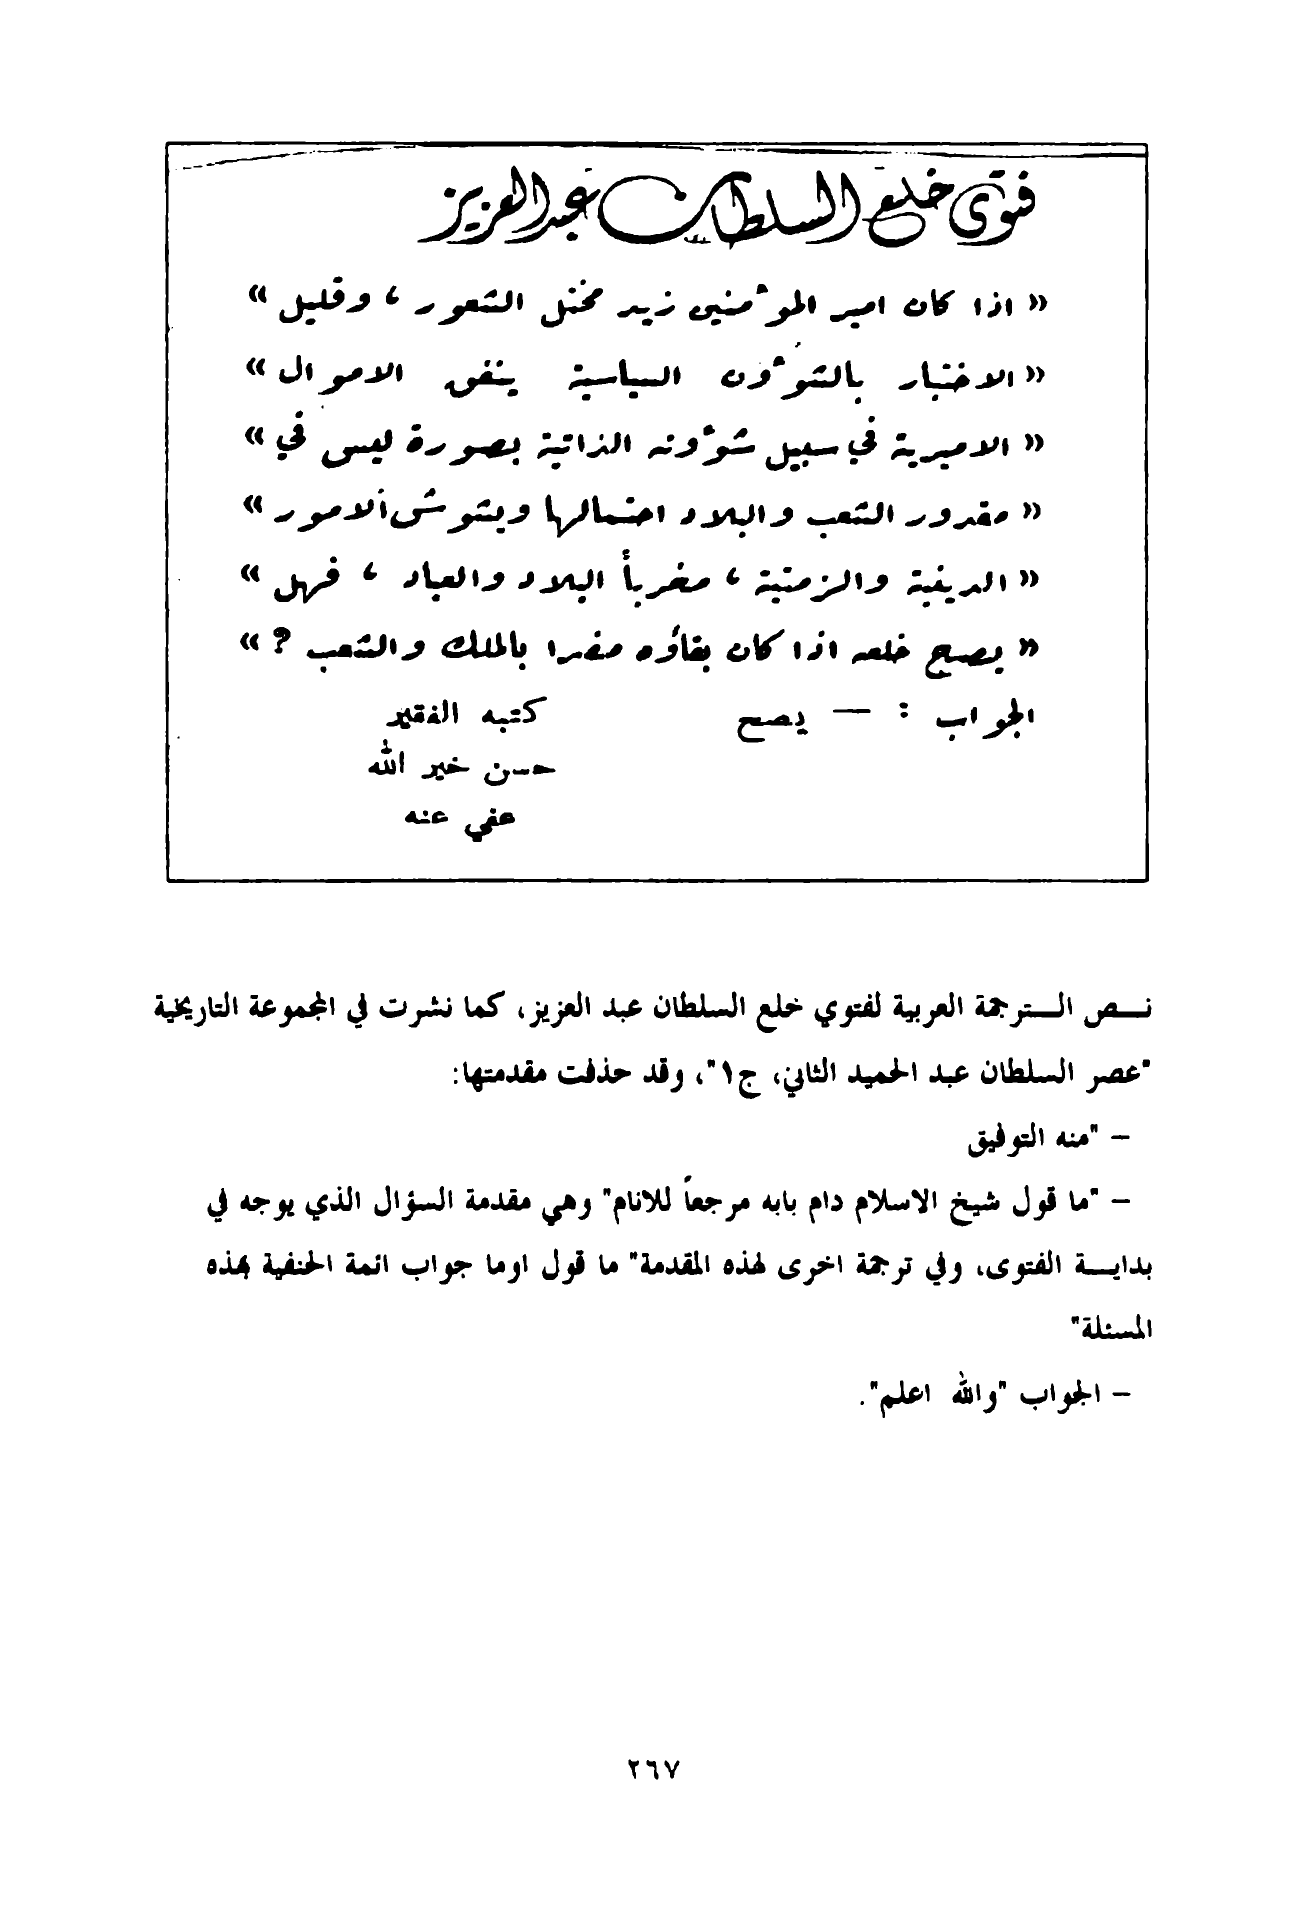 فتوى خلع السلطان عبد العزيز
« اذا كان امير المؤمنين زيد مختل الشعور ، وقليل »
« الاختبار بالشؤون السياسية ينفق الاموال »
« الاميرية في سبيل شؤونه الذاتية بصورة ليس في »
« مقدور الشعب والبلاد احتمالها ويشوش الامور »
« الدينية والزمنية ، مخرباً البلاد والعباد ، فهل »
« يصح خلعه اذا كان بقاؤه مضرا بالملك والشعب ? »
الجواب : — يصح كتبه الفقير
حسن خير الله
عفي عنه
نص الترجمة العربية لفتوي خلع السلطان عبد العزيز، كما نشرت في المجموعة التاريخية
"عصر السلطان عبد الحميد الثاني، ج١"، وقد حذفت مقدمتها:
– "منه التوفيق
– "ما قول شيخ الاسلام دام بابه مرجعاً للانام" وهي مقدمة السؤال الذي يوجه في
بداية الفتوى، وفي ترجمة اخرى لهذه المقدمة" ما قول اوما جواب ائمة الحنفية بهذه
المسئلة"
– الجواب "والله اعلم".
٢٦٧